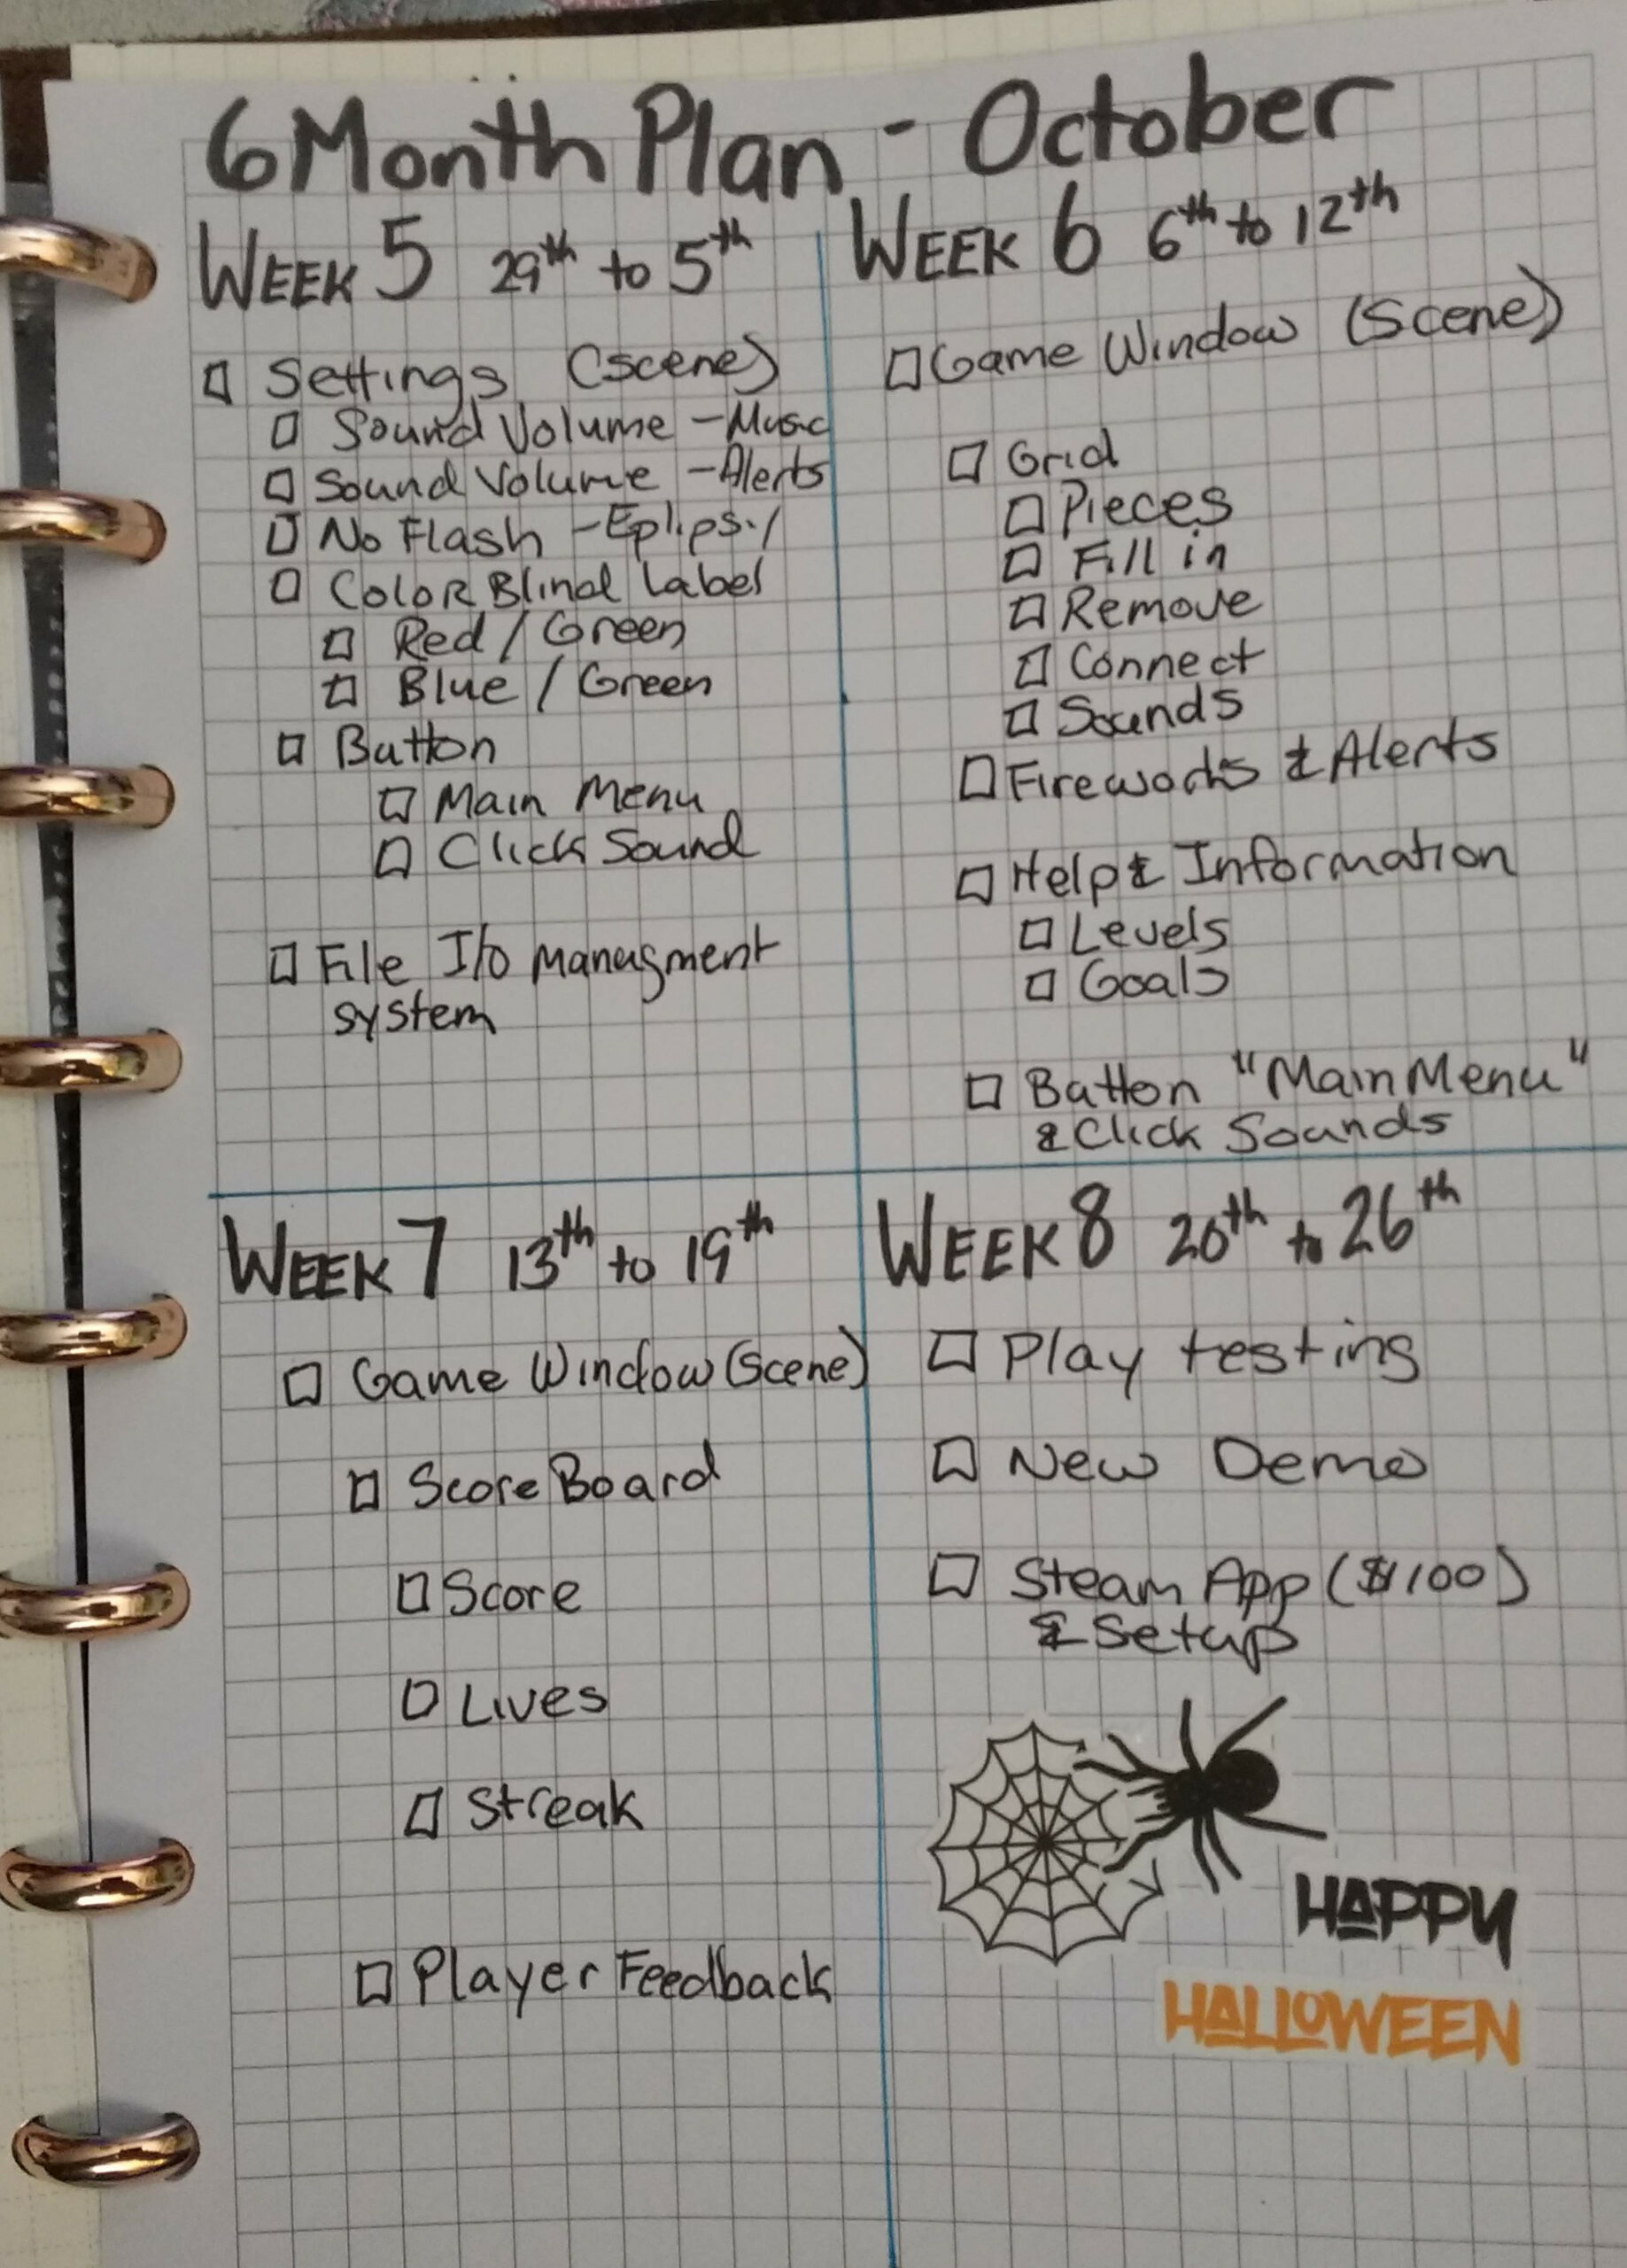 6 Month Plan - October
WEEK 5 29th to 5th
Settings (scene)
Sound Volume - Music
Sound Volume - Alerts
No Flash - Eplipsy
Color Blind Label
Red / Green
Blue / Green
Button
Main Menu
Click Sound
File I/O Managment
system
WEEK 6 6th to 12th
Game Window (Scene)
Grid
Pieces
Fill in
Remove
Connect
Sounds
Fireworks & Alerts
Help & Information
Levels
Goals
Button "Main Menu"
& Click Sounds
WEEK 7 13th to 19th
Game Window (Scene)
Score Board
Score
Lives
Streak
Player Feedback
WEEK 8 20th to 26th
Play testing
New Demo
Steam App ($100)
& Setup
HAPPY
HALLOWEEN